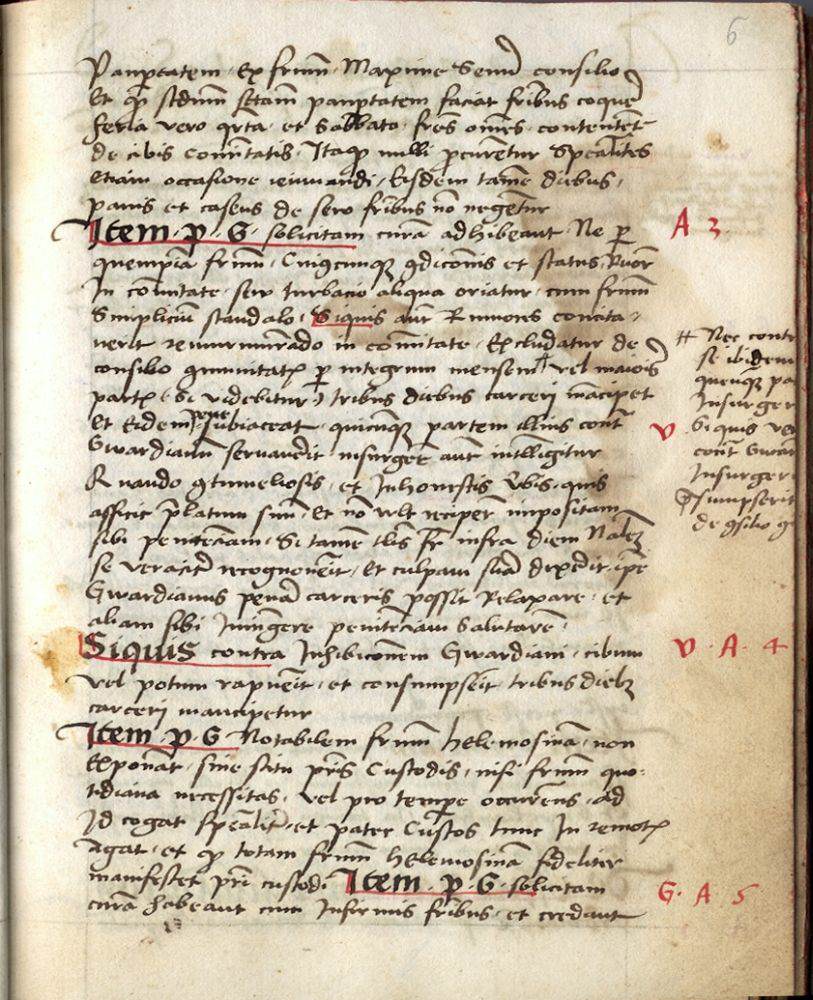 6
paupertatem. Ex frum. Maxime Senum consilio
Et qp sedm setam pauptatem faciat fribus coqué
feria vero qrta. et Sabbato. fres omes. contentet
de cibis comitatis. Itaqp nulli pcurentur Spealites
etiam occasione ieiunandi. Eisdem tame diebus,
panis et caseus de sero fribus nō negetur
Item. p. G. solicitam curā adhibeant. Ne p
quempiā frum. Cuiqcunqz qdicionis et status
In comitate. seu turbacio aliqua oriatur. cum frum
Simplicium scandalo. Siquis aut Rumores concita-
verit remurmurādo in comitate. Excludatur de
consilio qmunitatis p integrum mensem # vel maioris
partis (Si videbitur) tribus diebus carceri mācipet
Et Eidem pene subiaceat. quicūqz partem illius cont
Gwardianū servandit insurget aut intelligitur
Quando qtumeliosis. et Inhonestis vbis. quis
afficit platum suū. Et nō vlt reciper impositam
sibi peniteciam. Si tame tlis fr infra diem Nalez
se veracitr recognoueit. Et culpam suā dixerit. ipe
Gwardianus penā carceris possit Relaxare. et
aliam sibi Iniūgere peniteciam Salutare.
Siquis contra Inhibiconem Gwardiani. cibum
vel potum rapueit. et consumpseit. tribus diebz
carceri mancipetur
Item. p. G Notabilem frum helemosinā. non
Exponat. sine scitu pris Custodis. nisi frum quo-
tidiana necessitas. vel pro tempe occurens. ad
Id cogat spealitr. et pater Custos tunc In remotis
Agat. et qp totam frum helemosinā fideliter
manifestet pri custodi Item. p. G. solicitam
curā habeant cum Infirmis fribus. et credant
A 3.
# Nec contr
se ibidem
quenqz pa
Insurger
v. Siquis ve
cont Gwar
Insurger
psumpserit
de qsilio q
v. A. 4
G. A 5